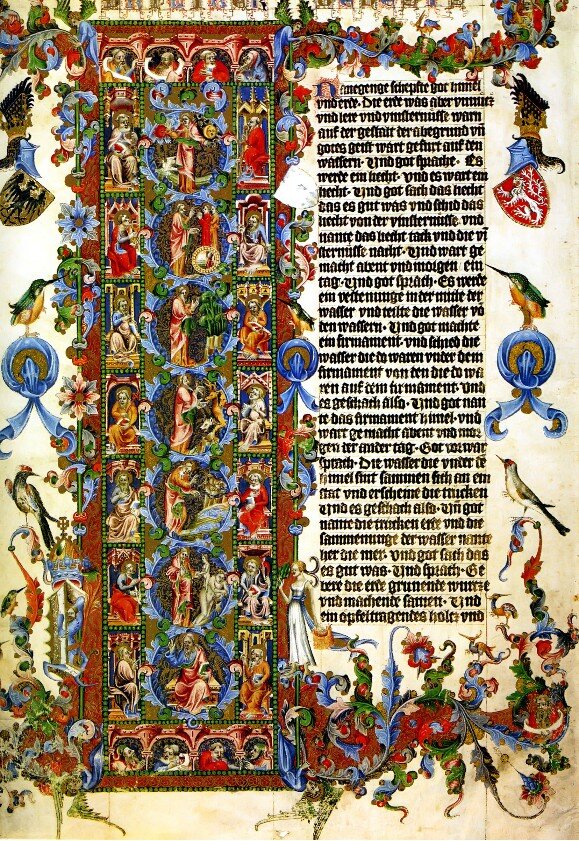 N anegenge schepfte got himel
vnd erde. Die erde was aber vnnucz
vnd lere vnd vinsternisse warn
auf der gestalt der abegrund vn̄
gotes geist wart gefurt auf den
wassern. Vnd got sprache. Es
werde ein liecht. vnd es wart ein
liecht. Vnd got sach das liecht
das es gut was vnd schid das
liecht von der vinsternisse. vnd
nante das liecht tack vnd die vi
sternisse nacht. Vnd wart ge
macht abent vnd morgen ein
tag. Vnd got sprach. Es werde
ein vestenunge in der mitte der
wasser vnd teilte die wasser vō
den wassern. Vnd got machte
ein firmament. vnd schied die
wasser die do waren vnder dem
firmament von den die do wa
ren auf dem firmament. Vnd
es geschach also. Vnd got nan
te das firmament himel. vnd
wart gemacht abent vnd mor
gen der ander tag. Got
sprach. Die wasser die vnder dē
himel sint sammen sich an ein
stat vnd erscheine die trucken
Vnd es geschach also. Vn̄ got
nante die trucken erde vnd die
sammenunge der wasser nante
her die mer. Vnd got sach das
es gut was. Vnd sprach. Ge
bere die erde grunende wurtze
vnd machende samen. Vnd
ein opfeltragendes holtz vnd